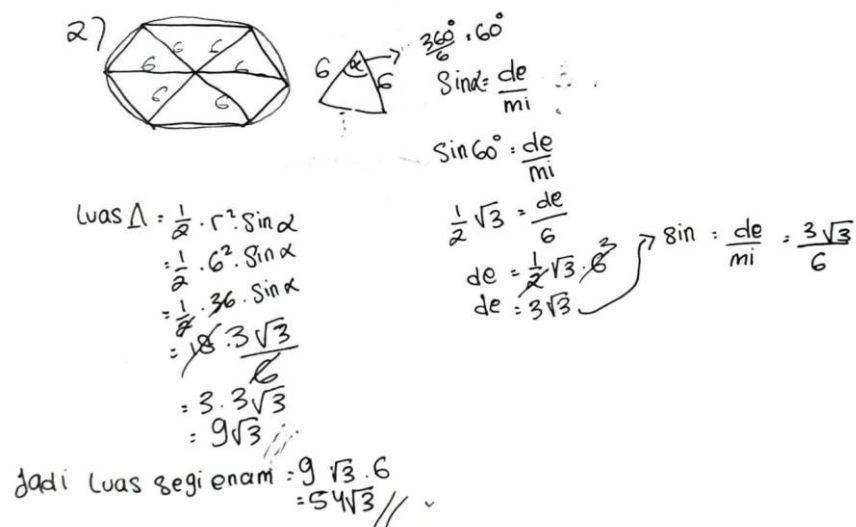 2)
6 6
6 6
6 6
6 α 6
360°/6 = 60°
Sinα = de/mi
Sin 60° = de/mi
1/2 √3 = de/6
de = 1/2 √3 . 6³
de = 3√3
sin = de/mi = 3√3/6
Luas Δ = 1/2 . r² . Sin α
= 1/2 . 6² . Sin α
= 1/2 . 36 . Sin α
= 18 . 3√3/6
= 3 . 3√3
= 9√3 //
Jadi Luas segi enam = 9 √3 . 6
= 54√3 //